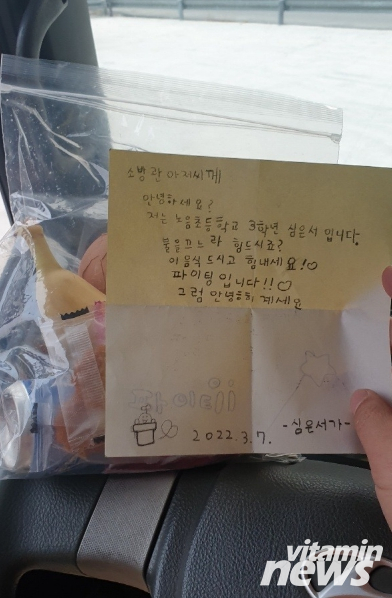 소방관 아저씨께
안녕하세요?
저는 노음초등학교 3학년 심은서 입니다.
불을끄느라 힘드시죠?
이음식 드시고 힘내세요!♡
파이팅 입니다!!♡
그럼 안녕히 계세요
파이팅
2022.3.7.
-심은서가-
vitamin
news